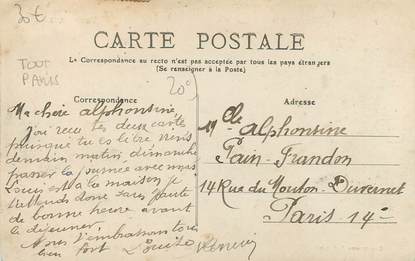 30€
TOUT
PARIS
CARTE POSTALE
La Correspondance au recto n'est pas acceptée par tous les pays étrangers
(Se renseigner à la Poste)
20€
Correspondance
Adresse
Ma chère alphonsine
J'ai reçu tes deux cartes
puisque tu es libre viens
demain matin, dimanche
passer la journée avec nous
Louis est à la maison je
t'attends donc sans faute
de bonne heure avant
le déjeuner.
Nous t'embrassons tous
bien fort Louise
Mlle alphonsine
Pain-Frandon
14 Rue du Mouton-Duvernet
Paris 14e